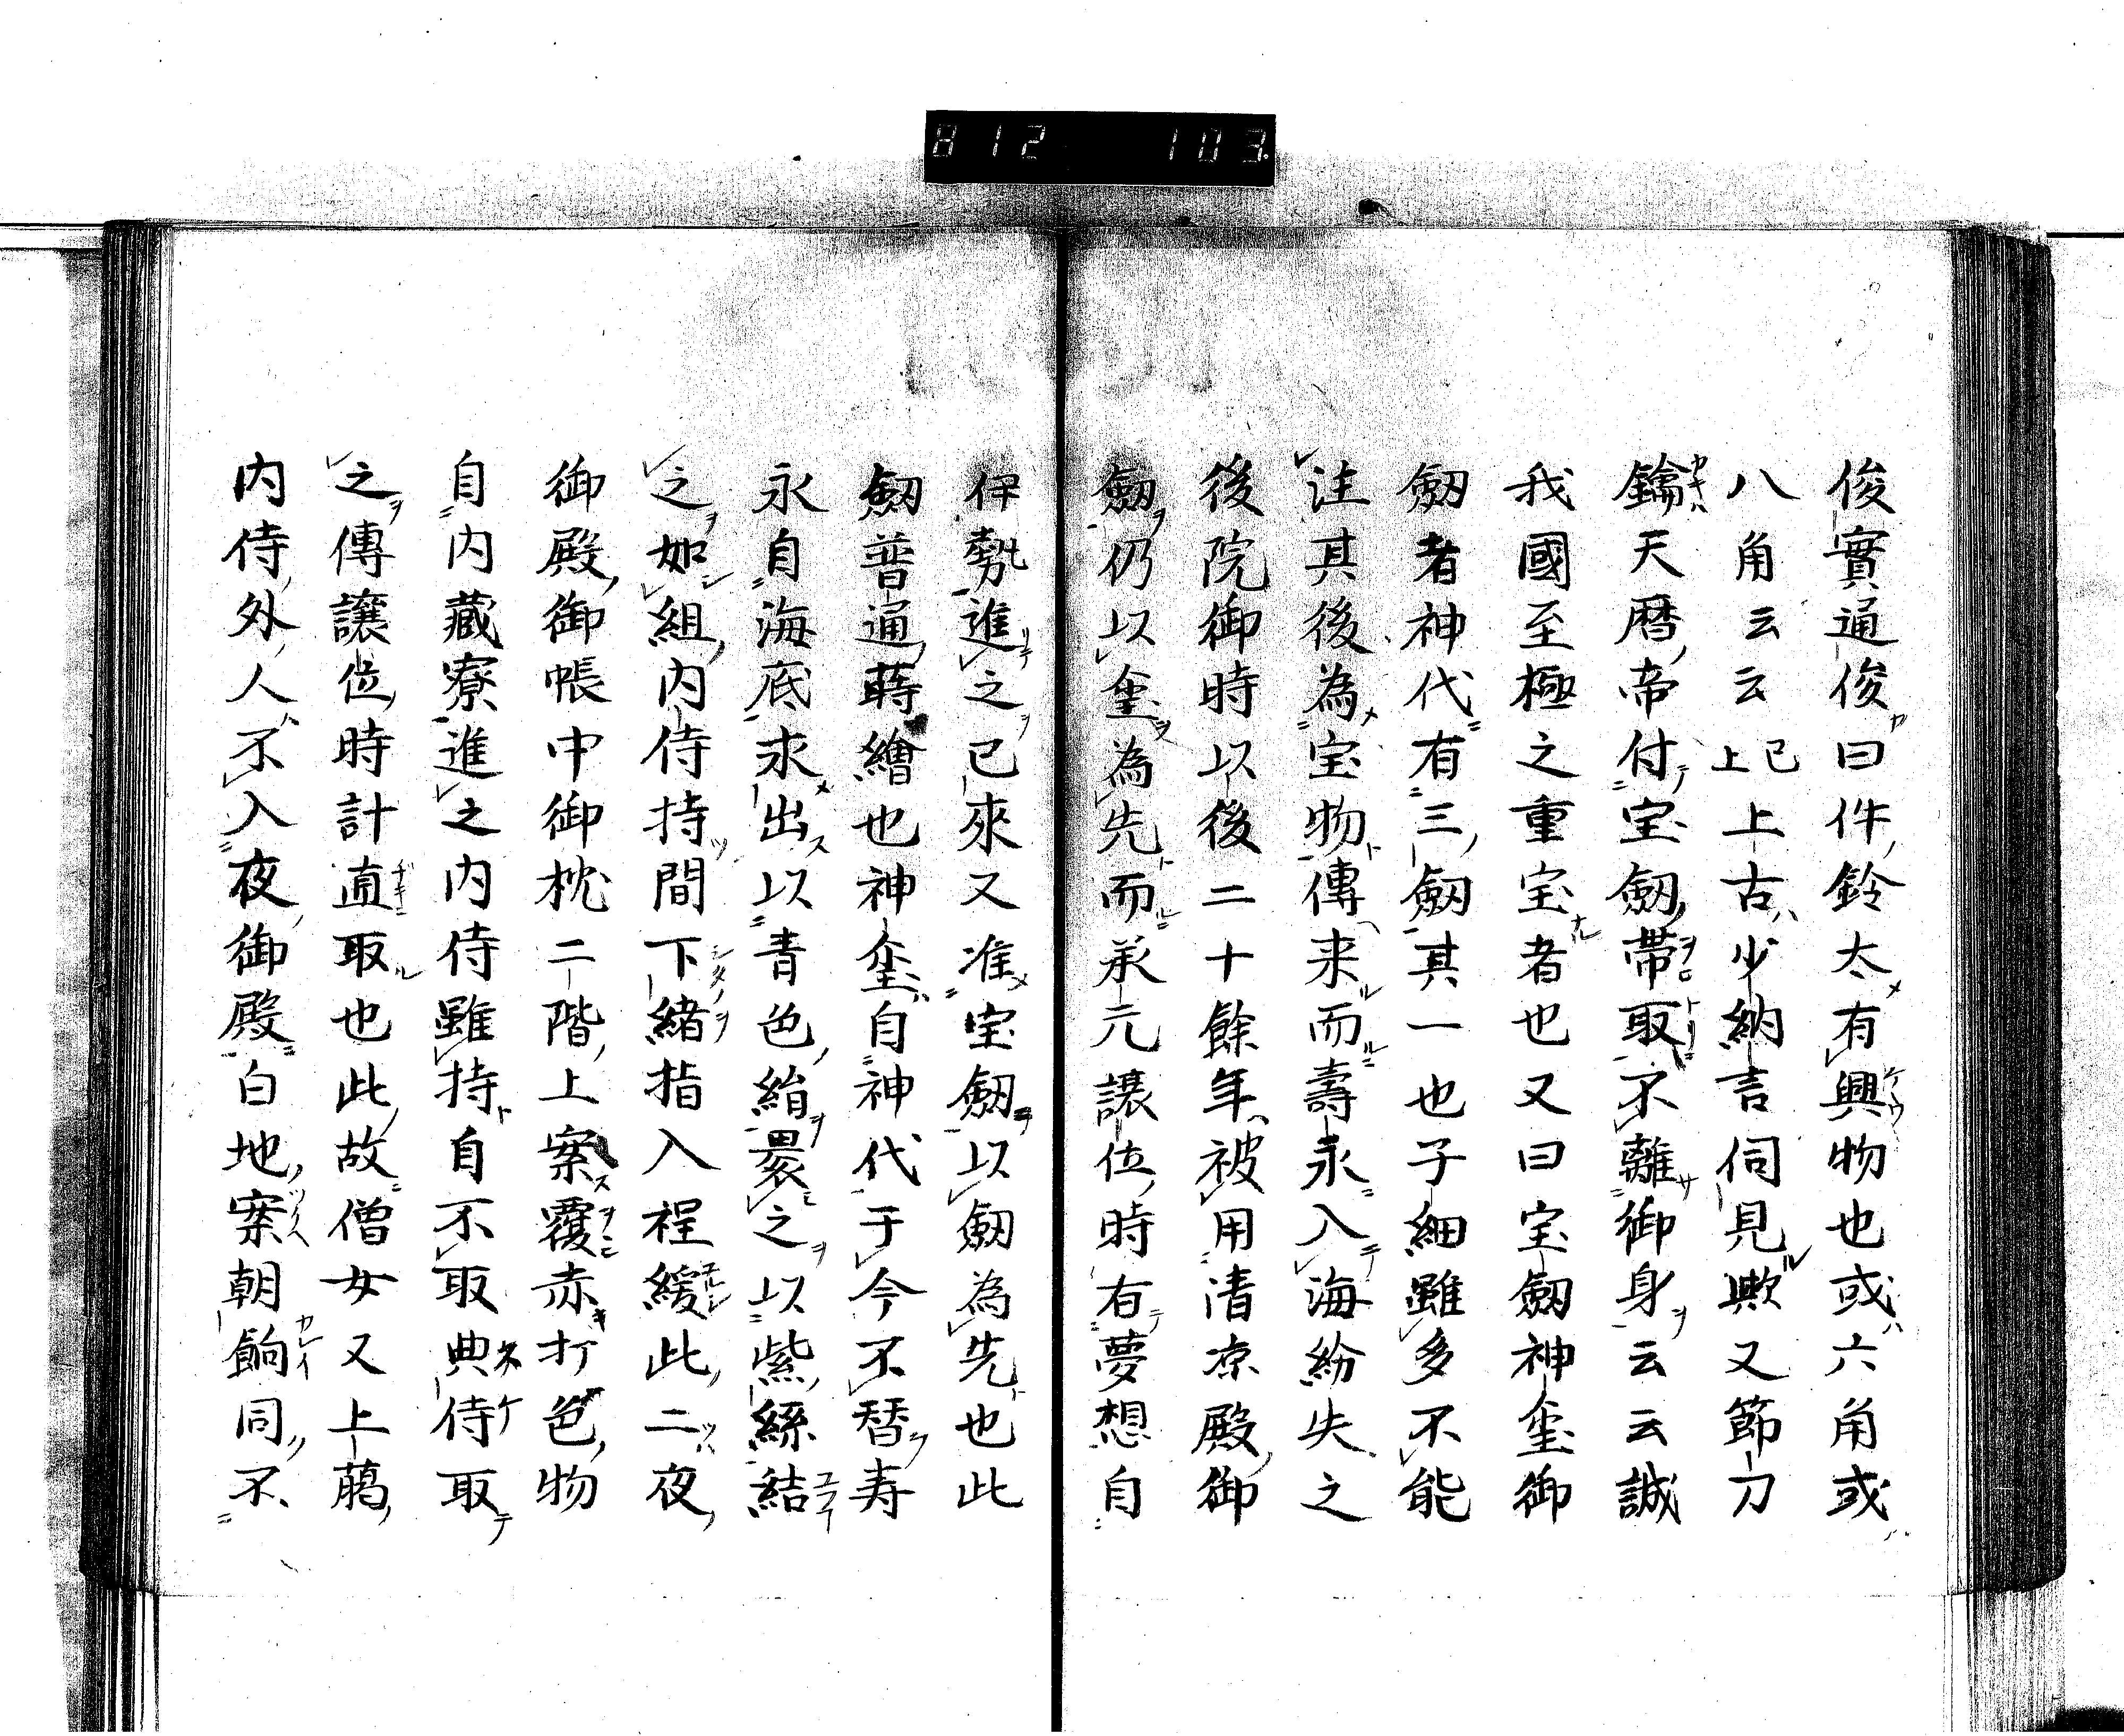 812 103.
俊實通俊曰件鈴太有興物也或六角或
八角云云已上上古少納言伺見歟又節刀
鑰天暦帝付宝剱帶取不離御身云云誠
我國至極之重宝者也又曰宝剱神璽御
剱者神代有三剱其一也子細雖多不能
注其後為宝物傳来而壽永入海紛失之
後院御時以後二十餘年被用清凉殿御
剱仍以璽為先而承元讓位時有夢想自
伊勢進之已來又准宝剱以剱為先也此
剱普通蒔繪也神璽自神代于今不替寿
永自海底求出以青色絹裹之以紫絲結
之如組内侍持間下緒指入程緩此二夜
御殿御帳中御枕二階上案覆赤打色物
自内藏寮進之内侍雖持自不取典侍取
之傳讓位時計直取也此故僧女又上﨟
内侍外人不入夜御殿白地案朝餉同不